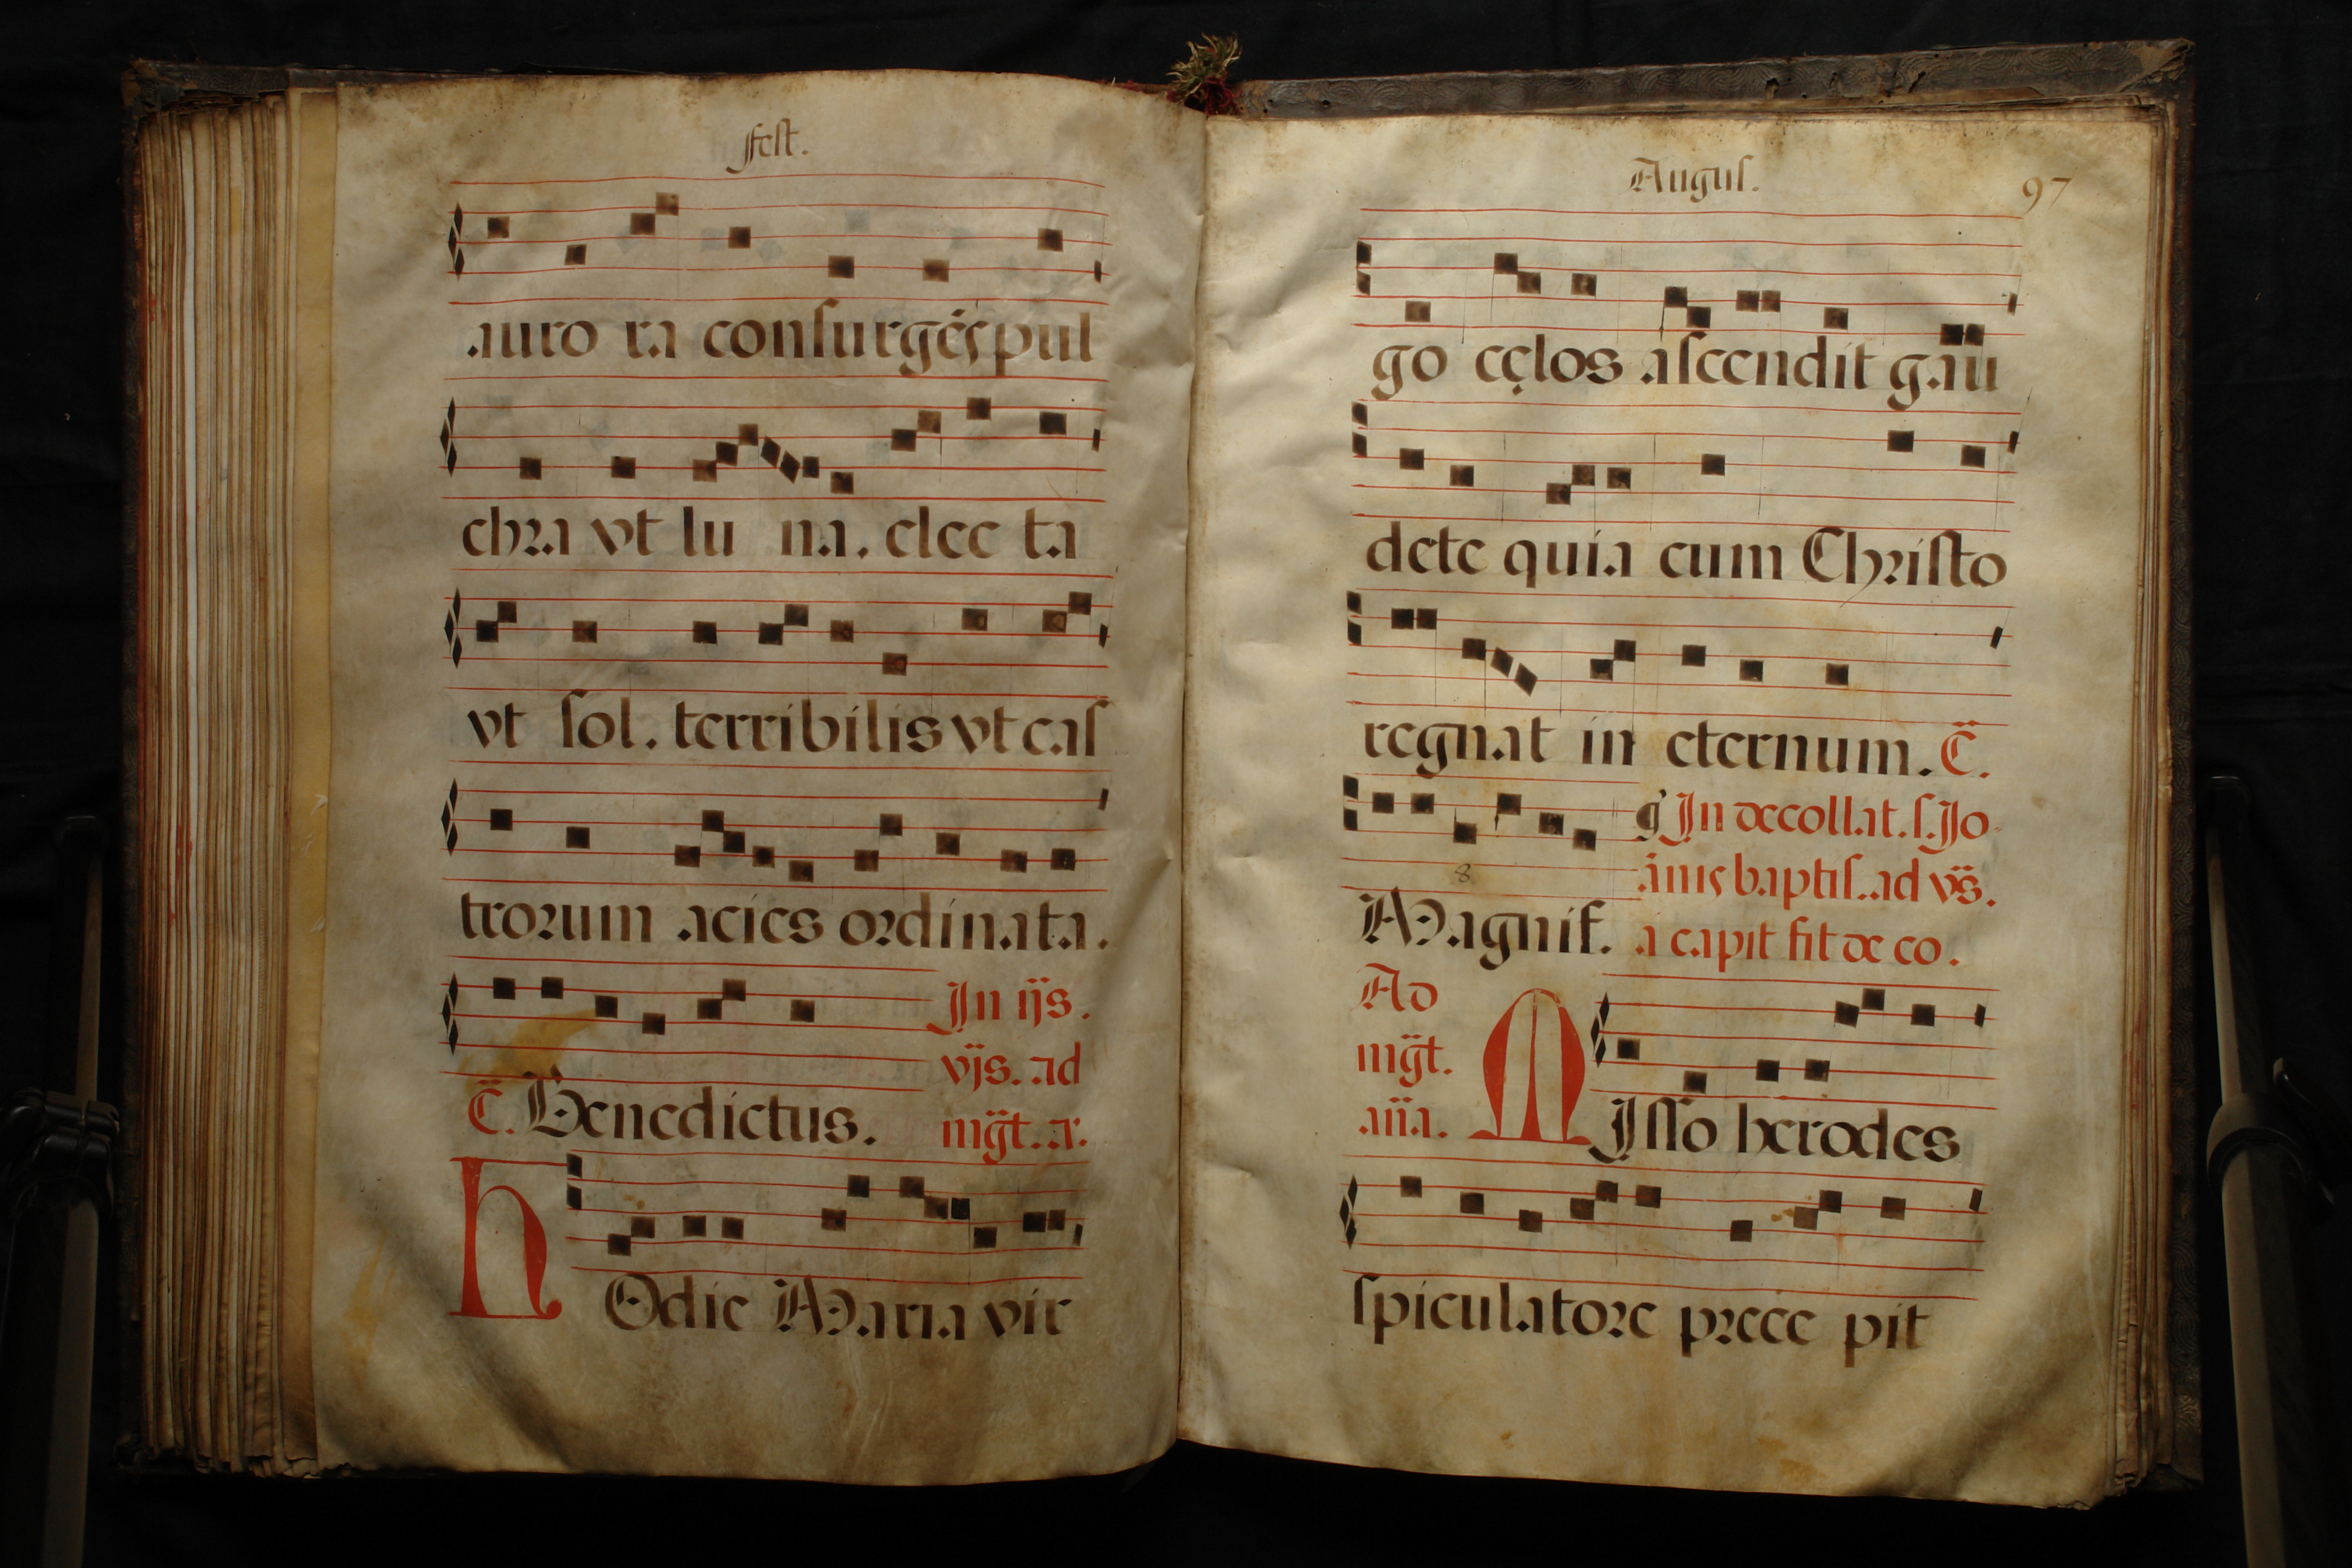 fest.
auro ra consurgẽs pul
chra vt lu na. elec ta
vt sol. terribilis vt cas
trorum acies ordinata.
In ijs.
vjs. ad
mg̃t. a.
E. Benedictus.
hOdie Maria vir
Augus.
97
go cęlos ascendit gau
dete quia cum Christo
regnat in eternum. E.
In decollat. s. Jo
ãnis baptis. ad vs̃.
a capit fit de co.
8
Magnif.
Ad
mg̃t.
an̄a.
MIsso herodes
spiculatore prece pit